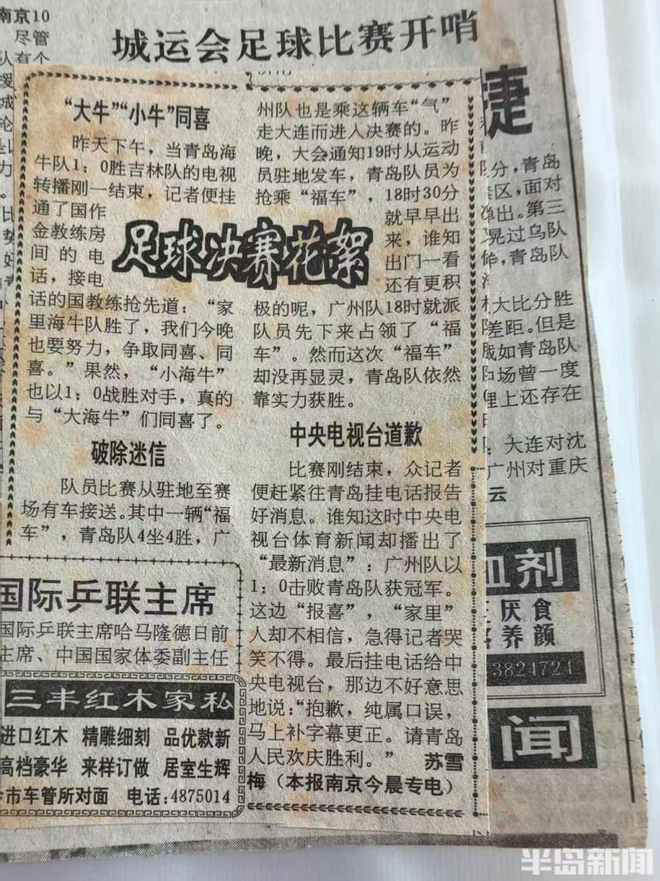 南京10
尽管
城运会足球比赛开哨
“大牛”“小牛”同喜
昨天下午，当青岛海
牛队1：0胜吉林队的电视
转播刚一结束，记者便挂
通了国作
金教练房
间的电
话，接电
话的国教练抢先道：“家
里海牛队胜了，我们今晚
也要努力，争取同喜、同
喜。”果然，“小海牛”
也以1：0战胜对手，真的
与“大海牛”们同喜了。
破除迷信
队员比赛从驻地至赛
场有车接送。其中一辆“福
车”，青岛队4坐4胜，广
足球决赛花絮
州队也是乘这辆车“气”
走大连而进入决赛的。昨
晚，大会通知19时从运动
员驻地发车，青岛队员为
抢乘“福车”，18时30分
就早早出
来，谁知
出门一看
还有更积
极的呢，广州队18时就派
队员先下来占领了“福
车”。然而这次“福车”
却没再显灵，青岛队依然
靠实力获胜。
中央电视台道歉
比赛刚结束，众记者
便赶紧往青岛挂电话报告
好消息。谁知这时中央电
视台体育新闻却播出了
“最新消息”：广州队以
1：0击败青岛队获冠军。
这边“报喜”，“家里”
人却不相信，急得记者哭
笑不得。最后挂电话给中
央电视台，那边不好意思
地说：“抱歉，纯属口误，
马上补字幕更正。请青岛
人民欢庆胜利。” 苏雪
梅（本报南京今晨专电）
国际乒联主席
国际乒联主席哈马隆德日前
主席、中国国家体委副主任
三丰红木家私
进口红木 精雕细刻 品优款新
高档豪华 来样订做 居室生辉
市车管所对面 电话：4875014
捷
分，青岛
区，面对
出。第三
晃过乌队
，青岛队
大比分胜
差距。但是
如青岛队
场曾一度
理上还存在
、大连对沈
广州对重庆
云
血剂
厌食
养颜
3824724
闻
半岛新闻